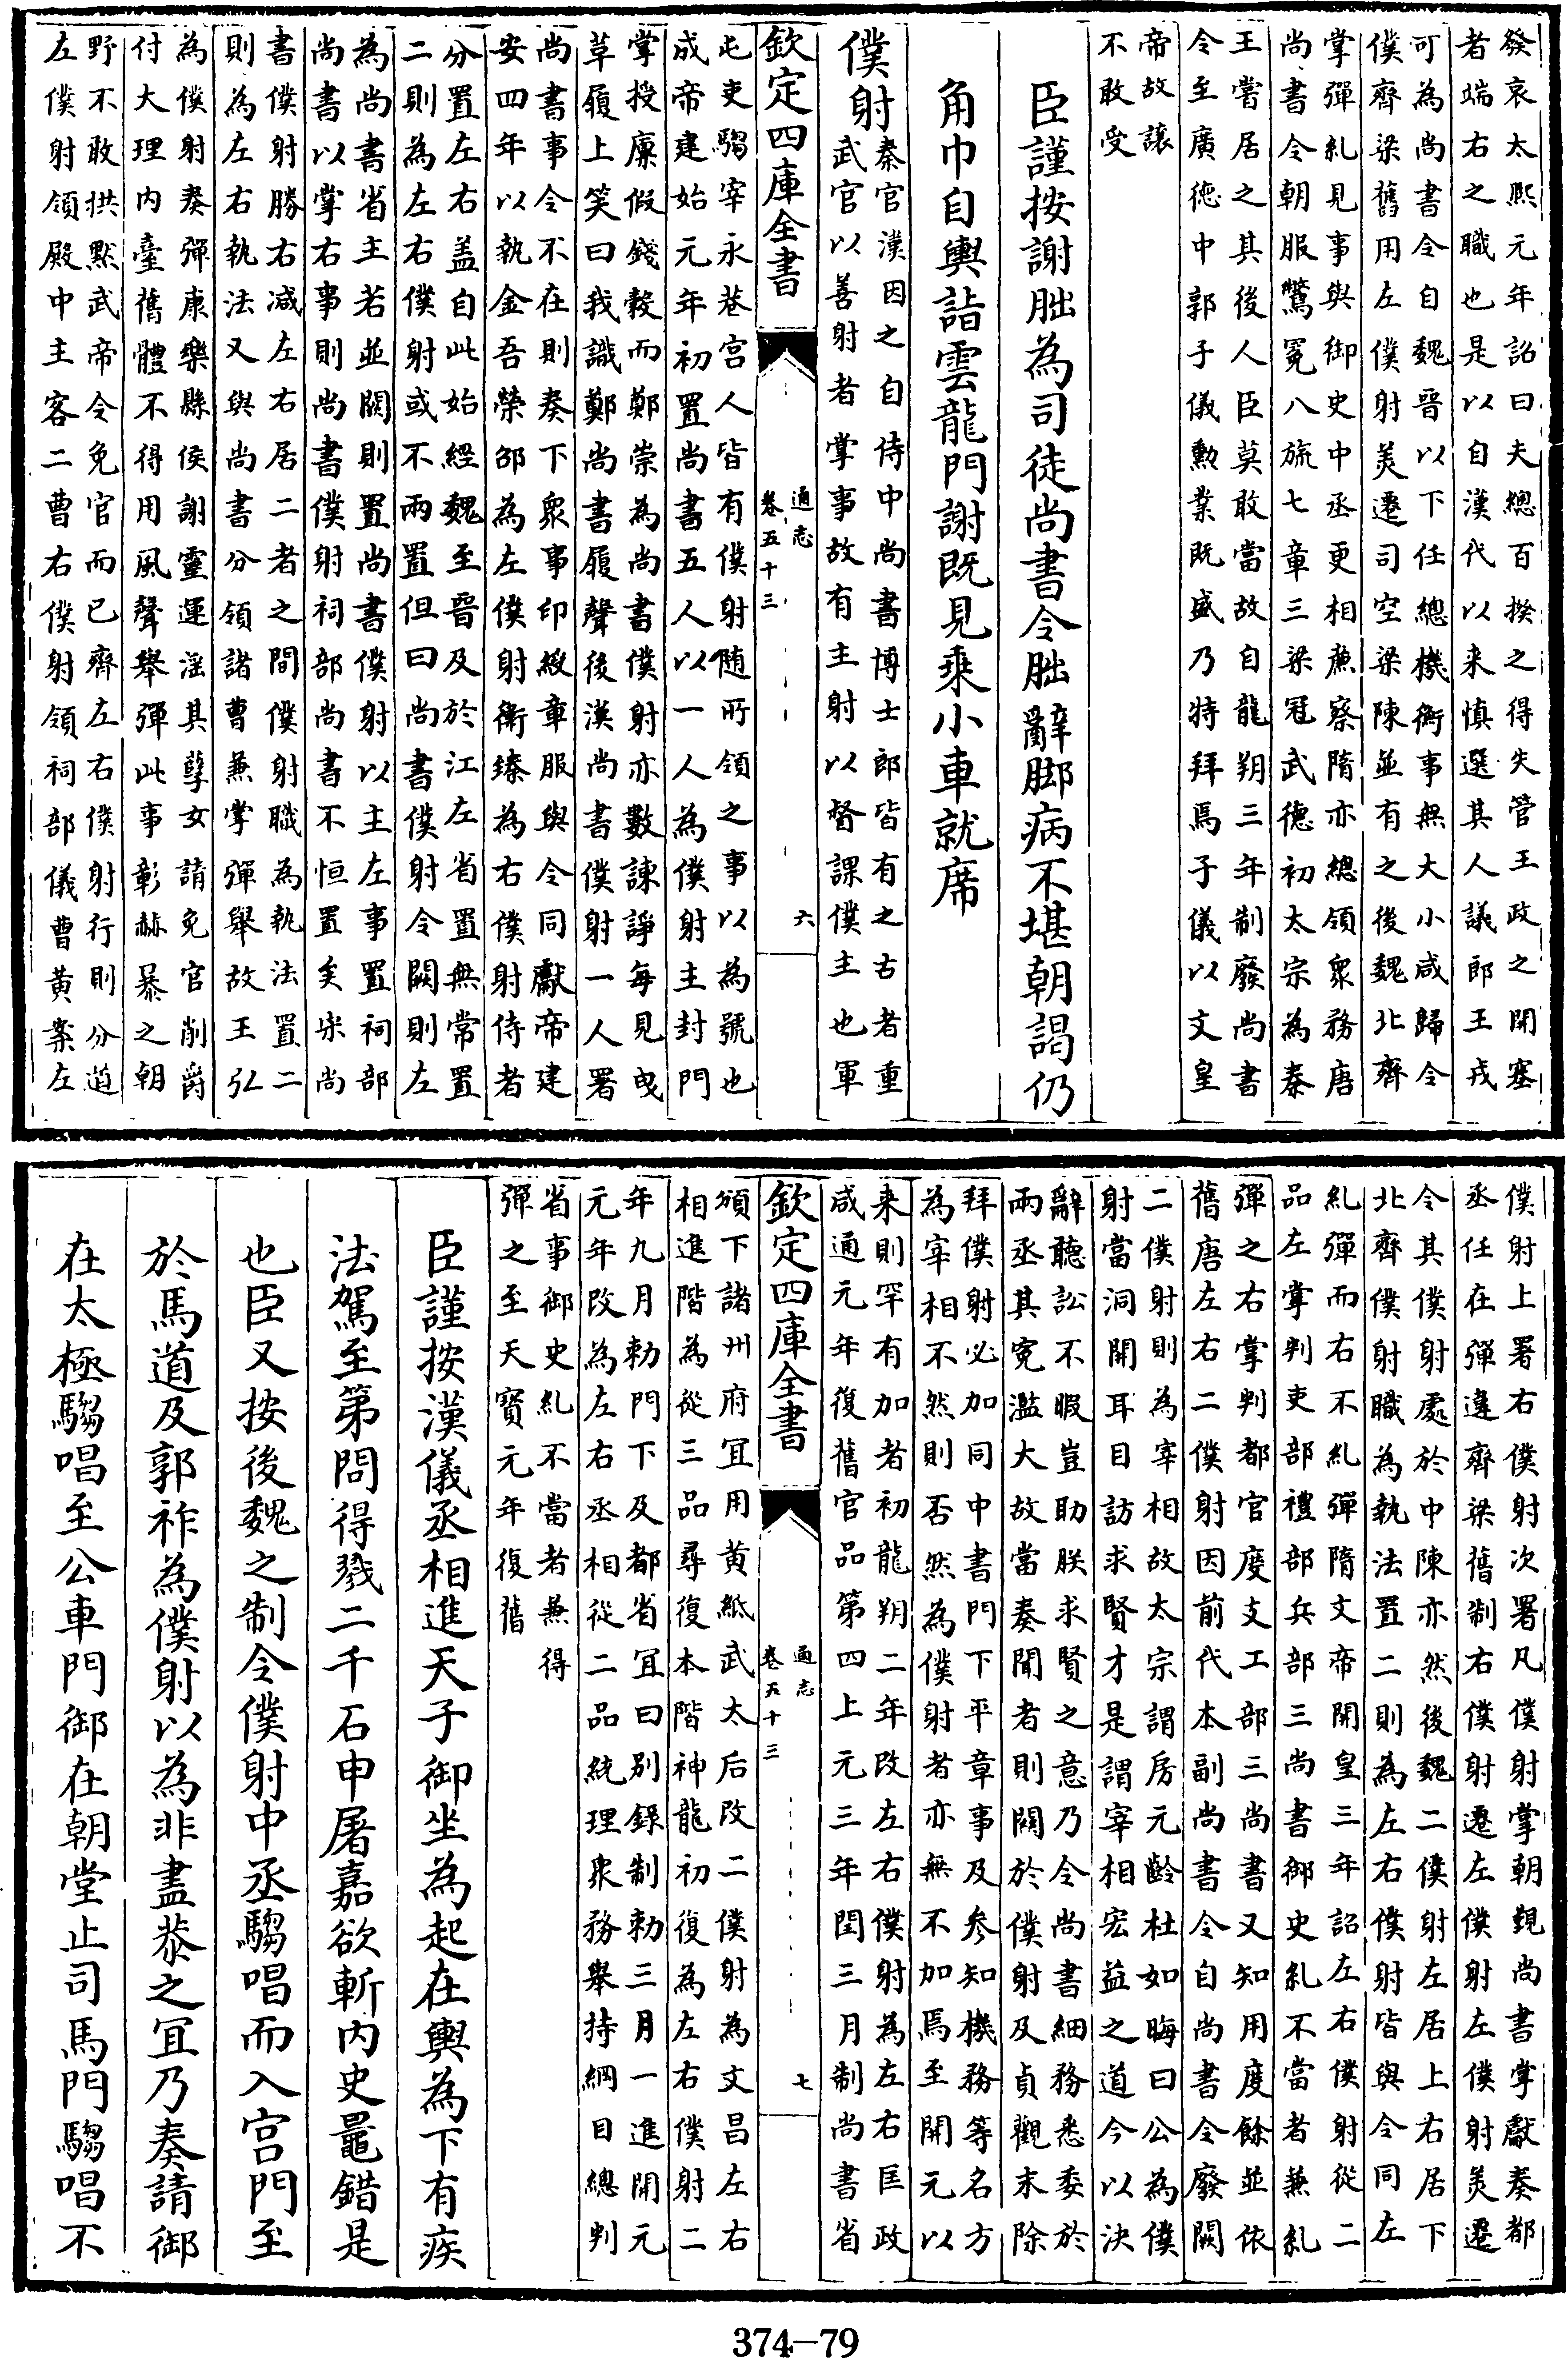 發哀太熙元年詔曰夫總百揆之得失管王政之開塞
者端右之職也是以自漢代以来慎選其人議郎王戎
可為尚書令自魏晉以下任總機衡事無大小咸歸令
僕齊梁舊用左僕射美遷司空梁陳並有之後魏北齊
掌彈糾見事與御史中丞更相㢘察隋亦總領衆務唐
尚書令朝服鷩冕八旒七章三梁冠武德初太宗為秦
王嘗居之其後人臣莫敢當故自龍朔三年制廢尚書
令至廣徳中郭子儀勲業既盛乃特拜焉子儀以文皇
帝故讓
不敢受
臣謹按謝朏為司徒尚書令朏辭脚病不堪朝謁仍
角巾自輿詣雲龍門謝既見乘小車就席
僕射
秦官漢因之自侍中尚書博士郎皆有之古者重
武官以善射者掌事故有主射以督課僕主也軍
欽定四庫全書
通志
卷五十三
六
屯吏騶宰永巷宫人皆有僕射随所領之事以為號也
成帝建始元年初置尚書五人以一人為僕射主封門
掌授廩假錢糓而鄭崇為尚書僕射亦數諫諍每見曵
草履上笑曰我識鄭尚書履聲後漢尚書僕射一人署
尚書事令不在則奏下衆事印綬章服與令同獻帝建
安四年以執金吾榮郃為左僕射衛臻為右僕射侍者
分置左右盖自此始經魏至晉及於江左省置無常置
二則為左右僕射或不兩置但曰尚書僕射令闕則左
為尚書省主若並闕則置尚書僕射以主左事置祠部
尚書以掌右事則尚書僕射祠部尚書不恒置矣宋尚
書僕射勝右减左右居二者之間僕射職為執法置二
則為左右執法又與尚書分領諸曹兼掌彈舉故王弘
為僕射奏彈康樂縣侯謝靈運滛其孽女請免官削爵
付大理内臺舊體不得用風聲舉彈此事彰赫暴之朝
野不敢拱黙武帝令免官而已齊左右僕射行則分道
左僕射領殿中主客二曹右僕射領祠部儀曹黄案左
僕射上署右僕射次署凡僕射掌朝覲尚書掌獻奏都
丞任在彈違齊梁舊制右僕射遷左僕射左僕射美遷
令其僕射處於中陳亦然後魏二僕射左居上右居下
北齊僕射職為執法置二則為左右僕射皆與令同左
糾彈而右不糾彈隋文帝開皇三年詔左右僕射從二
品左掌判吏部禮部兵部三尚書御史糾不當者兼糾
彈之右掌判都官度支工部三尚書又知用度餘並依
舊唐左右二僕射因前代本副尚書令自尚書令廢闕
二僕射則為宰相故太宗謂房元齡杜如晦曰公為僕
射當洞開耳目訪求賢才是謂宰相宏益之道今以決
辭聽訟不暇豈助朕求賢之意乃令尚書細務悉委於
兩丞其寃濫大故當奏聞者則闕於僕射及貞觀末除
拜僕射必加同中書門下平章事及参知機務等名方
為宰相不然則否然為僕射者亦無不加焉至開元以
来則罕有加者初龍朔二年改左右僕射為左右匡政
咸通元年復舊官品第四上元三年閏三月制尚書省
欽定四庫全書
通志
卷五十三
七
頒下諸州府宜用黄紙武太后改二僕射為文昌左右
相進階為從三品尋復本階神龍初復為左右僕射二
年九月勅門下及都省宜曰别錄制勅三月一進開元
元年改為左右丞相從二品統理衆務舉持綱目總判
省事御史糾不當者兼得
彈之至天寶元年復舊
臣謹按漢儀丞相進天子御坐為起在輿為下有疾
法駕至第問得戮二千石申屠嘉欲斬内史鼂錯是
也臣又按後魏之制令僕射中丞騶唱而入宫門至
於馬道及郭祚為僕射以為非盡恭之宜乃奏請御
在太極騶唱至公車門御在朝堂止司馬門騶唱不
374-79